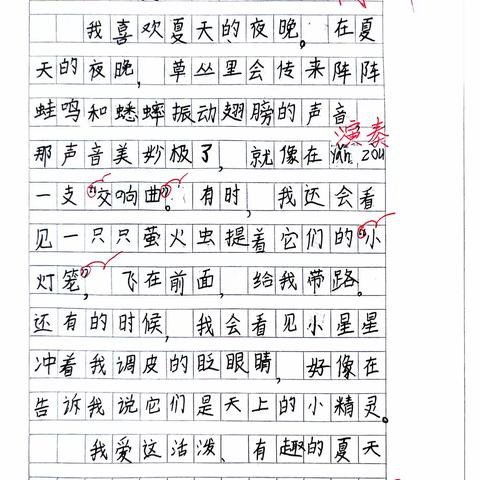 我喜欢夏天的夜晚。在夏
天的夜晚，草丛里会传来阵阵
蛙鸣和蟋蟀振动翅膀的声音，
演奏
那声音美妙极了，就像在yǎn zòu
一支“交响曲”。有时，我还会看
见一只只萤火虫提着它们的“小
灯笼”，飞在前面，给我带路。
还有的时候，我会看见小星星
冲着我调皮的眨眼睛，好像在
告诉我说它们是天上的小精灵。
我爱这活泼、有趣的夏天